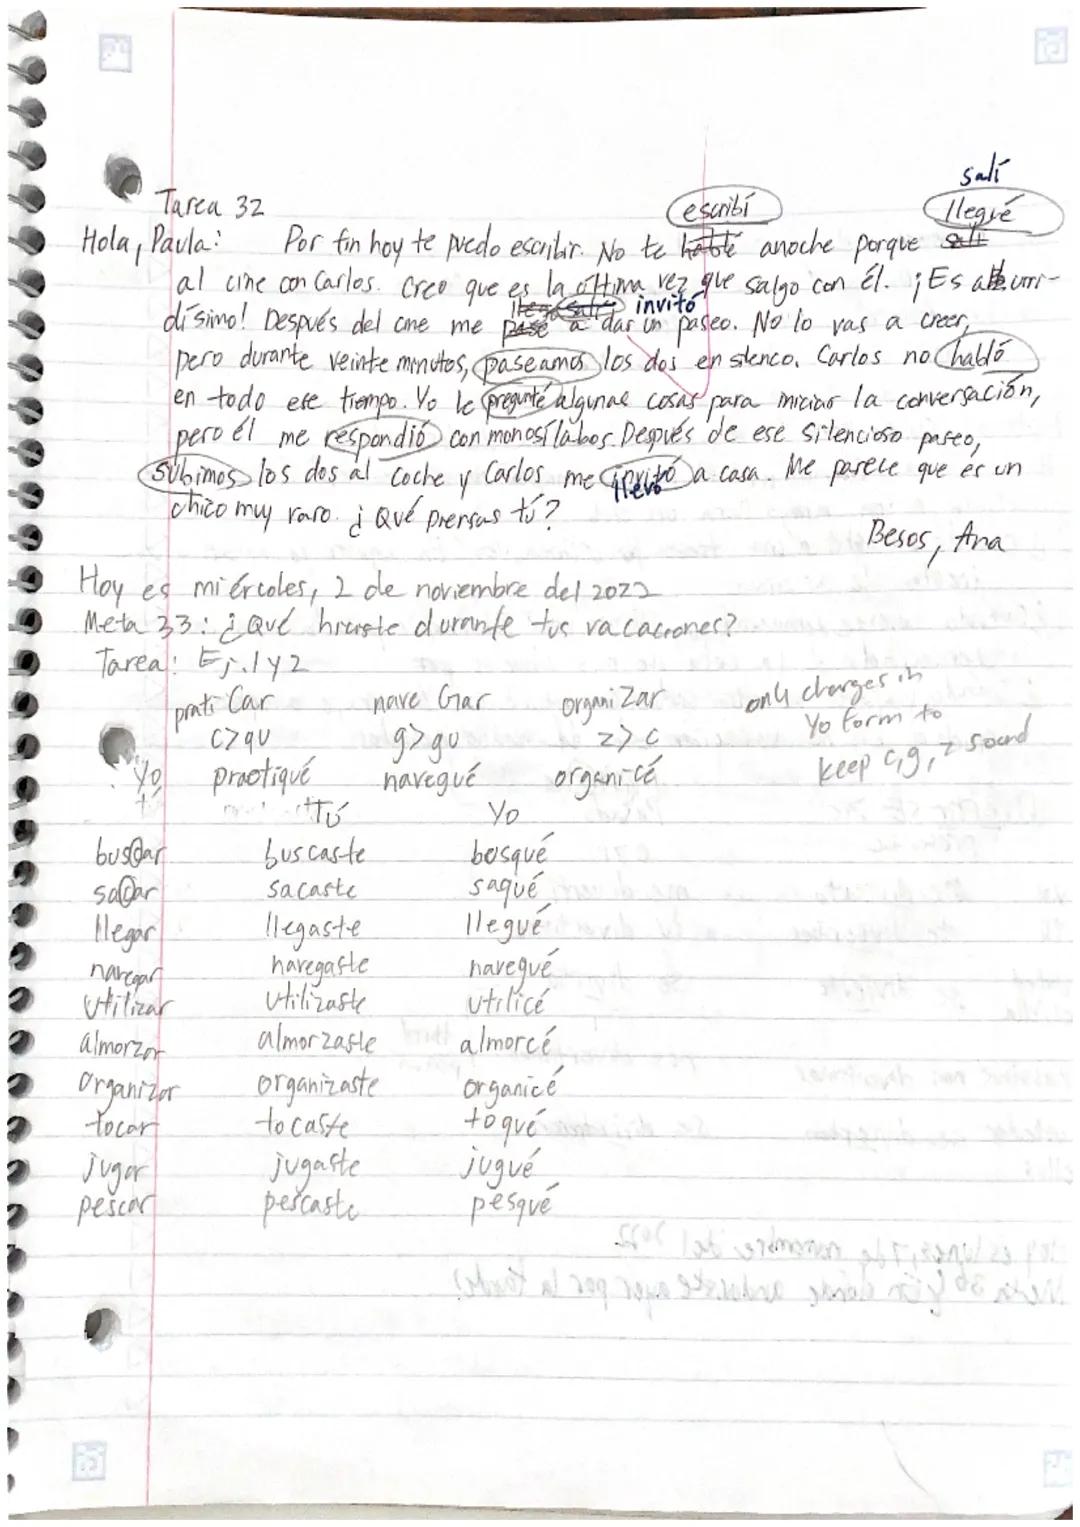 Tarea 32
salí
escribí llegué
Hola, Paula: Por fin hoy te puedo escribir. No te hablé anoche porque salí
al cine con Carlos. Creo que es la última vez que salgo con él. ¡Es aburri-
salí invitó
dísimo! Después del cine me pasé a dar un paseo. No lo vas a creer,
pero durante veinte minutos, paseamos los dos en silenco. Carlos no habló
en todo ese tiempo. Yo le pregunté algunas cosas para iniciar la conversación,
pero él me respondió con monosílabos. Después de ese silencioso paseo,
subimos los dos al coche y Carlos me invitó a casa. Me parece que es un
llevó
chico muy raro. ¿Qué piensas tú?
Besos, Ana
Hoy es miércoles, 2 de noviembre del 2022
Meta 33: ¿Qué hiciste durante tus vacaciones?
Tarea: Ej. 1 y 2
pratiCar naveGar organiZar only changes in
c>qu g>gu z>c Yo form to
Yo practiqué navegué organicé keep c, g, z sound
tú
Tú Yo
buscar buscaste bosqué
sacar sacaste saqué
llegar llegaste llegué
navegar navegaste navegué
utilizar utilizaste utilicé
almorzar almorzaste almorcé
organizar organizaste organicé
tocar tocaste toqué
jugar jugaste jugué
pescar pescaste pesqué